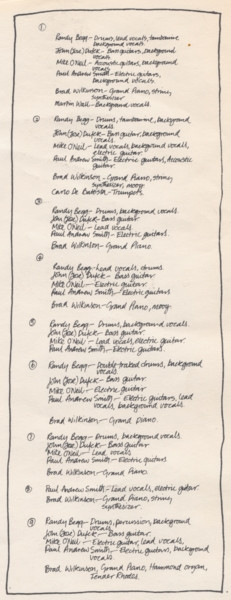 ①
Randy Begg - Drums, lead vocals, tambourine
background vocals.
John (Joe) Dufek - Bass guitars, background
vocals
Mike O'Neil - Acoustic guitars, background
vocals.
Paul Andrew Smith - Electric guitars,
background vocals.
Brad Wilkinson - Grand Piano, string
synthesizer
Martin - Background vocals.
②
Randy Begg - Drums, tambourine, background
vocals.
John (Joe) Dufek - Bass guitar, background
vocals
Mike O'Neil - Lead vocals, background vocals,
electric guitar
Paul Andrew Smith - Electric guitars, acoustic
guitar
Brad Wilkinson - Grand Piano, string
synthesizer, moog.
Carlo De Batista - Trumpets.
③
Randy Begg - Drums, background vocals.
John (Joe) Dufek - Bass guitar
Mike O'Neil - Lead vocals
Paul Andrew Smith - Electric guitars.
Brad Wilkinson - Grand Piano.
④
Randy Begg - Lead vocals, drums
John (Joe) Dufek - Bass guitar
Mike O'Neil - Electric guitar
Paul Andrew Smith - Electric guitars
Brad Wilkinson - Grand Piano, moog.
⑤
Randy Begg - Drums, background vocals.
John (Joe) Dufek - Bass guitar.
Mike O'Neil - Lead vocals, electric guitar.
Paul Andrew Smith - Electric guitars.
⑥
Randy Begg - Double-traked drums, background
vocals
John (Joe) Dufek - Bass guitar
Mike O'Neil - Electric guitar
Paul Andrew Smith - Electric guitars, lead
vocals, background vocals.
Brad Wilkinson - Grand piano.
⑦
Randy Begg - Drums, background vocals.
John (Joe) Dufek - Bass guitar
Mike O'Neil - Lead vocals
Paul Andrew Smith - Electric guitars
Brad Wilkinson - Grand Piano
⑧
Paul Andrew Smith - Lead vocals, electric guitar
Brad Wilkinson - Grand Piano, string
synthesizer.
⑨
Randy Begg - Drums, percussion, background
vocals.
John (Joe) Dufek - Bass guitar
Mike O'Neil - Electric guitar, lead vocals,
Paul Andrew Smith - Electric guitars, background
vocals
Brad Wilkinson, Grand Piano, Hammond organ,
Fender Rhodes.